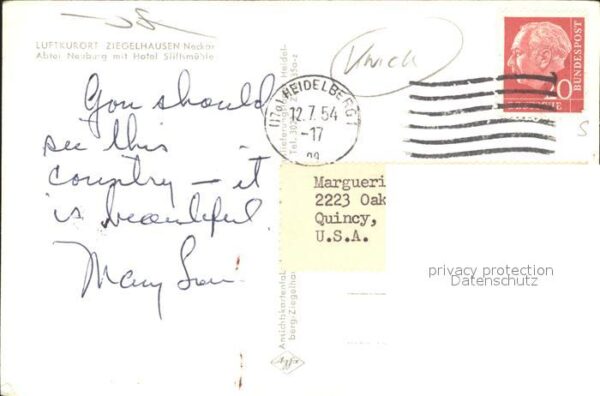 LUFTKURORT ZIEGELHAUSEN Neckar
Abtei Neuburg mit Hotel Stiftsmühle
You should
see this
country – it
is beautiful.
Mary Lou
(17a) HEIDELBERG 1
12.7.54
-17
20
DEUTSCHE BUNDESPOST
Margueri
2223 Oak
Quincy,
U.S.A.
privacy protection
Datenschutz
Ansichtskartenfab
berg-Ziegelhau
S